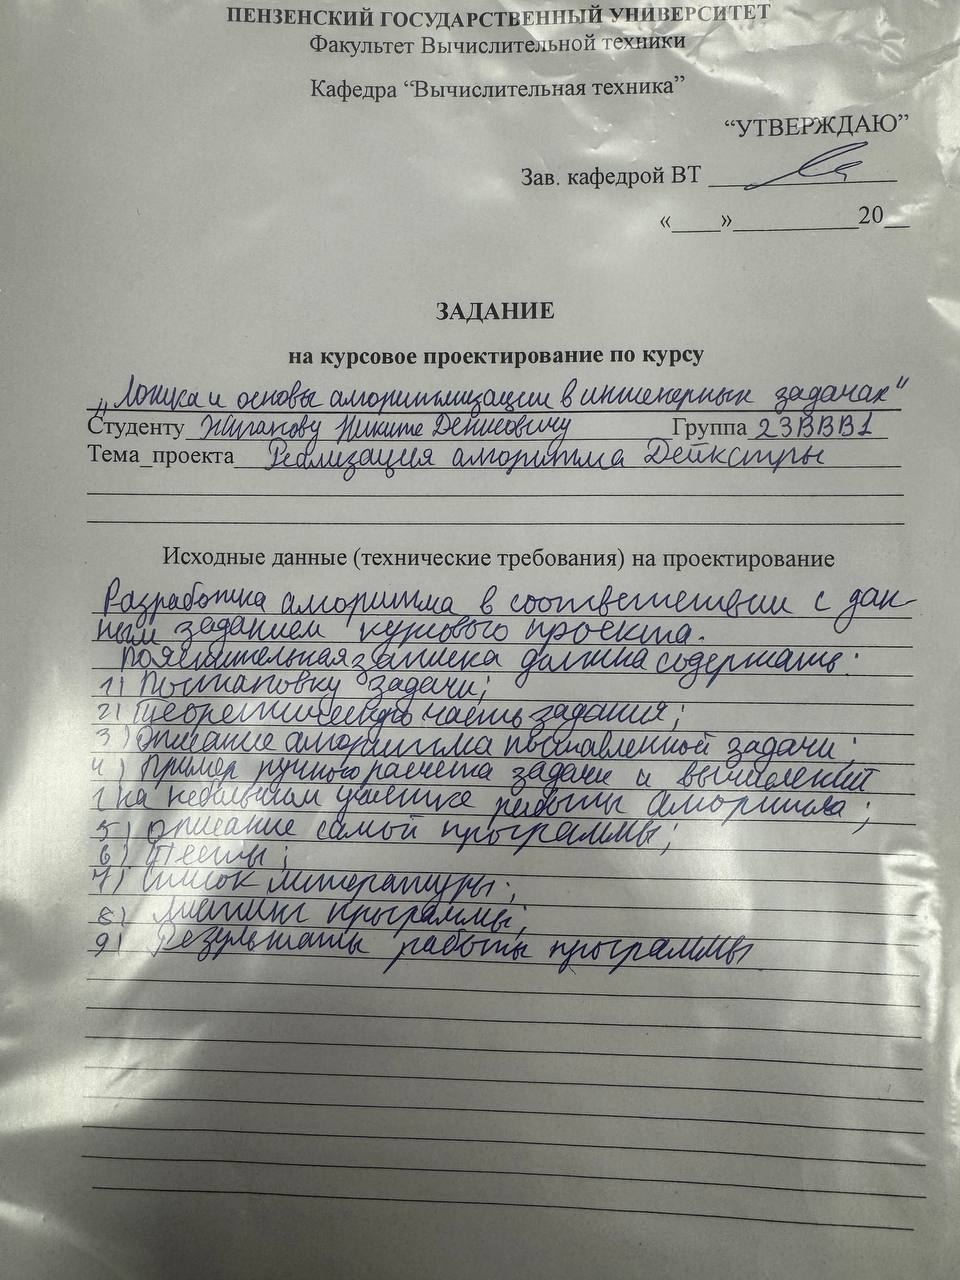 ПЕНЗЕНСКИЙ ГОСУДАРСТВЕННЫЙ УНИВЕРСИТЕТ
Факультет Вычислительной техники
Кафедра “Вычислительная техника”
“УТВЕРЖДАЮ”
Зав. кафедрой ВТ
«____»__________20__
ЗАДАНИЕ
на курсовое проектирование по курсу
„Логика и основы алгоритмизации в инженерных задачах“
Студенту Жиганову Никите Денисовичу Группа 23ВВВ1
Тема_проекта Реализация алгоритма Дейкстры
Исходные данные (технические требования) на проектирование
Разработка алгоритма в соответствии с дан-
ным заданием курсового проекта.
Пояснительная записка должна содержать:
1) Постановку задачи;
2) Теоретическую часть задания;
3) Описание алгоритма поставленной задачи;
4) Пример ручного расчета задачи и вычислений
( на небольшом участке работы алгоритма;
5) Описание самой программы;
6) Тесты;
7) Список литературы;
8) Листинг программы;
9) Результаты работы программы